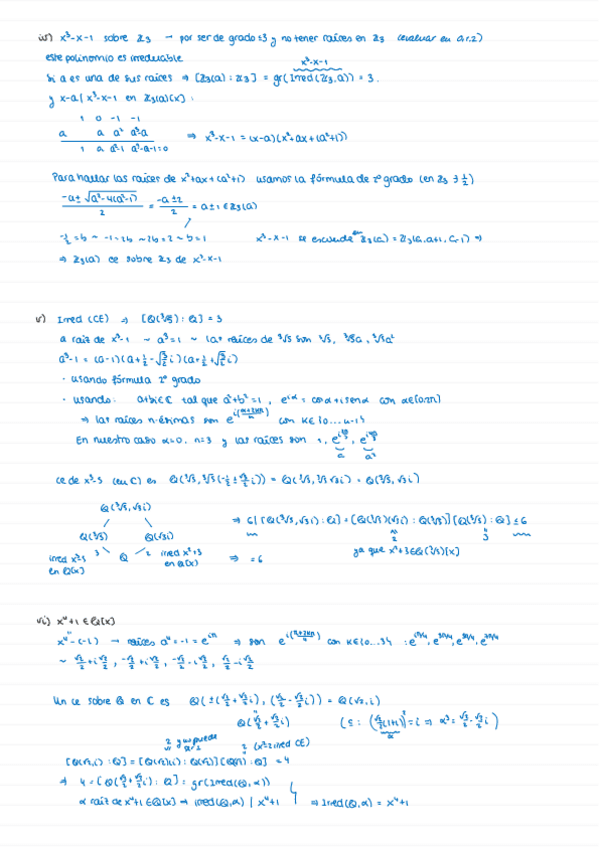 iv) x³-x-1 sobre ℤ₃ → por ser de grado ≤3 y no tener raíces en ℤ₃ (evaluar en 0,1,2)
este polinomio es irreducible
x³-x-1
Si a es una de sus raíces ⇒ [ℤ₃(a):ℤ₃] = gr(Irred(ℤ₃,a)) = 3.
y x-a | x³-x-1 en ℤ₃(a)[x]:
1 0 -1 -1
a a a² a³-a ⇒ x³-x-1 = (x-a)(x²+ax+(a²+1))
1 a a²-1 a³-a-1=0
Para hallar las raíces de x²+ax+(a²+1) usamos la fórmula de 2º grado (en ℤ₃ ∃ 1/2)
(-a±√(a²-4(a²-1)))/2 = (-a±2)/2 = a±1 ∈ ℤ₃(a)
-1/2=b ~ -1=2b ~ 2b=2 ~ b=1 x³-x-1 se escinde en ℤ₃(a) = ℤ₃(a,a+1,a-1) ⇒
⇒ ℤ₃(a) ce sobre ℤ₃ de x³-x-1
v) Irred (CE) → [ℚ(³√5):ℚ] = 3
a raíz de x³-1 ~ a³=1 ~ las raíces de ³√5 son ³√5, ³√5a, ³√5a²
a³-1 = (a-1)(a+1/2-√3/2 i)(a+1/2+√3/2 i)
· usando fórmula 2º grado
· usando: a+bi∈ℂ tal que a²+b²=1, e^{iα} = cosα+i senα con α∈[0,2π)
⇒ las raíces n-ésimas son e^{i(α+2πk/n)} con k∈{0...n-1}
En nuestro caso α=0, n=3 y las raíces son 1,
a a²
ce de x³-5 (en ℂ) es ℚ(³√5, ³√5(-1/2±√3/2 i)) = ℚ(³√5, ³√5 √3i) = ℚ(³√5, √3i)
ℚ(³√5,√3i)
⇒ 6 | [ℚ(³√5,√3i):ℚ] = [ℚ(³√5)(√3i):ℚ(³√5)][ℚ(³√5):ℚ] ≤ 6
ℚ(³√5) ℚ(√3i)
2 3
irred x³-5 3 ℚ 2 irred x²+3 ⇒ = 6 ya que x²+3∈ℚ(³√5)[x]
en ℚ[x] en ℚ[x]
vi) x⁴+1 ∈ ℚ[x]
x⁴-(-1) → raíces a⁴=-1=e^{iπ} ⇒ son e^{i(π+2πk/4)} con k∈{0...3}
~ √2/2+i√2/2, -√2/2+i√2/2, -√2/2-i√2/2, √2/2-i√2/2
Un ce sobre ℚ en ℂ es ℚ(±(√2/2+√2/2 i), (√2/2-√2/2 i)) = ℚ(√2,i)
ℚ(√2/2+√2/2 i)
α
2 2 (x²-2 irred CE)
[ℚ(√2,i):ℚ] = [ℚ(√2)(i):ℚ(√2)][ℚ(√2):ℚ] = 4
⇒ 4 = [ℚ(√2/2+√2/2 i):ℚ] = gr(Irred(ℚ,α))
α raíz de x⁴+1∈ℚ[x] ⇒ Irred(ℚ,α) | x⁴+1 ⇒ Irred(ℚ,α) = x⁴+1